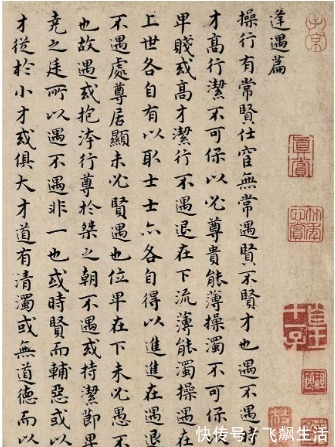 逢遇篇
操行有常賢仕宦無常遇賢不賢才也遇不遇時
才高行潔不可保以必尊貴能薄操濁不可保
卑賤或高才潔行不遇退在下流薄能濁操遇
上世各自有以取士士亦各自得以進進在遇退在
不遇處尊居顯未必賢遇也位卑在下未必愚不
也故遇或抱洿行尊於桀之朝不遇或持潔節卑
堯之廷所以遇不遇非一也或時賢而輔惡或以
才從於小才或俱大才道有清濁或無道德而以
子京
真賞
快传号/飞飙生活